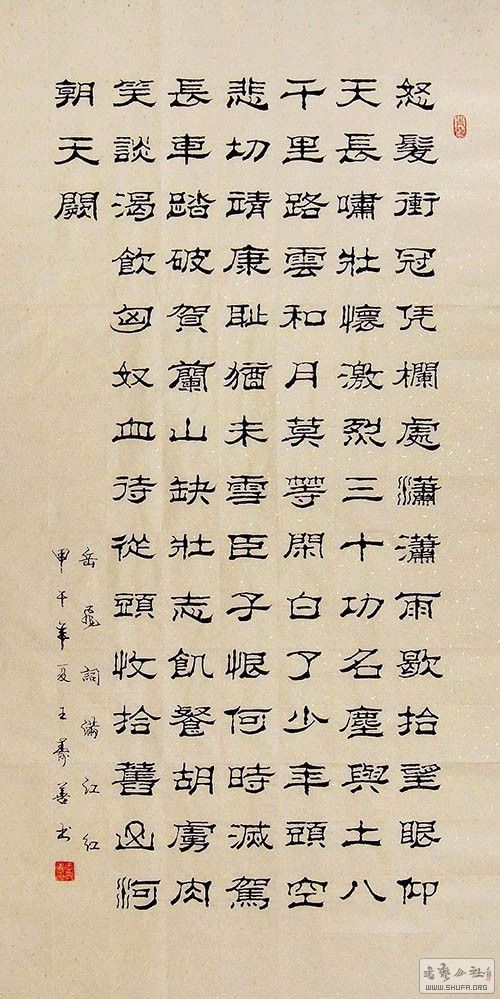 怒髮衝冠凭欄處瀟瀟雨歇拾望眼仰
天長嘯壯懷激烈三十功名塵與土八
千里路雲和月莫等閑白了少年頭空
悲切靖康耻猶未雪臣子恨何時滅駕
長車踏破賀蘭山缺壯志飢餐胡虜肉
笑談渴飲匈奴血待從頭收拾舊山河
朝天闕
岳飛詞滿江紅
甲午年夏王壽善书
书藝公社
WWW.SHUFA.ORG